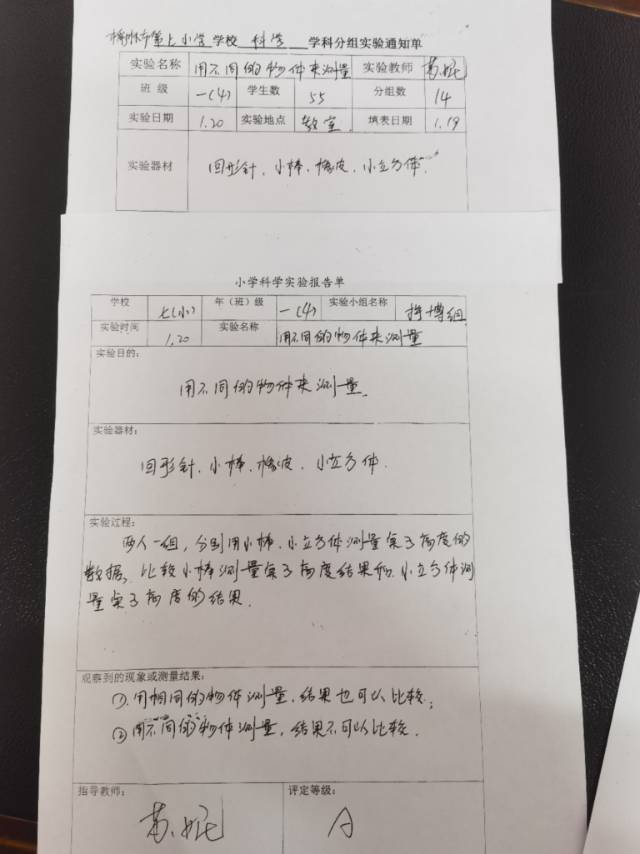 榆林市第七小学学校 科学 学科分组实验通知单
实验名称 用不同的物体来测量 实验教师
班 级 一(4) 学生数 55 分组数 14
实验日期 1.20 实验地点 教室 填表日期 1.19
实验器材 回形针、小棒、橡皮、小立方体.
小学科学实验报告单
学校 七(小) 年(班)级 一(4) 实验小组名称
实验时间 1.20 实验名称 用不同的物体来测量
实验目的:
用不同的物体来测量.
实验器材:
回形针、小棒、橡皮、小立方体.
实验过程:
两人一组,分别用小棒、小立方体测量桌子高度的
数据,比较小棒测量桌子高度结果和小立方体测
量桌子高度的结果.
观察到的现象或测量结果:
①.用相同的物体测量,结果也可以比较;
②用不同的物体测量,结果不可以比较.
指导教师: 评定等级:
A